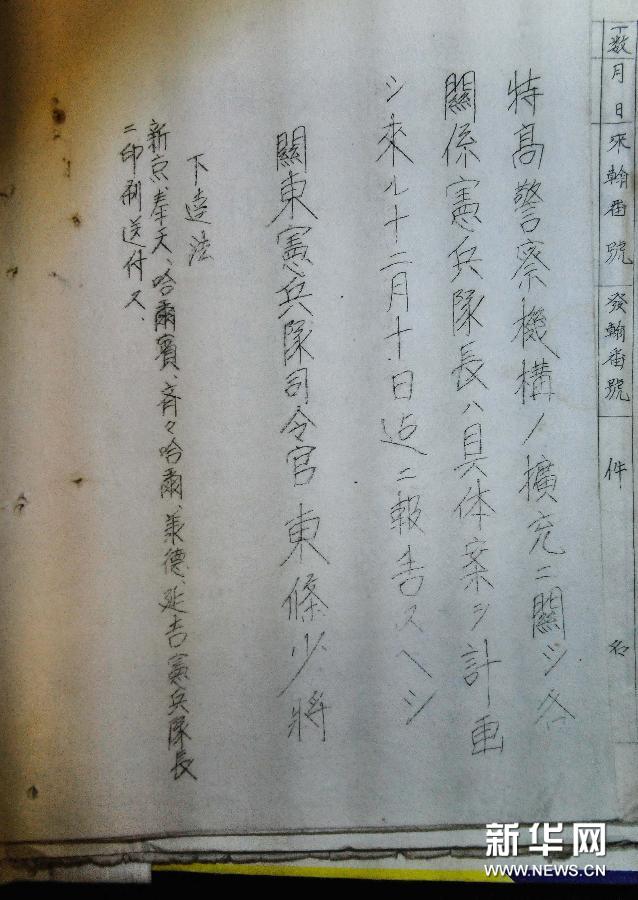 丁数 月 日 來翰番號 發翰番號 件 名
特高警察機構ノ擴充ニ關シ各
關係憲兵隊長ハ具体案ヲ計画
シ來ル十二月十日迠ニ報告スヘシ
關東憲兵隊司令官 東條少將
下達法
新京、奉天、哈爾賓、斉々哈爾、承德、延吉憲兵隊長
ニ印刷送付ス、
新华网
WWW.NEWS.CN